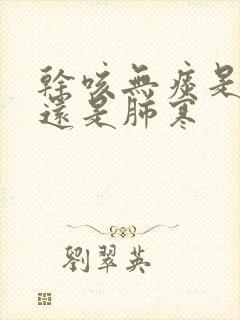 榦咳無痰是
還是肺寒
劉翠英